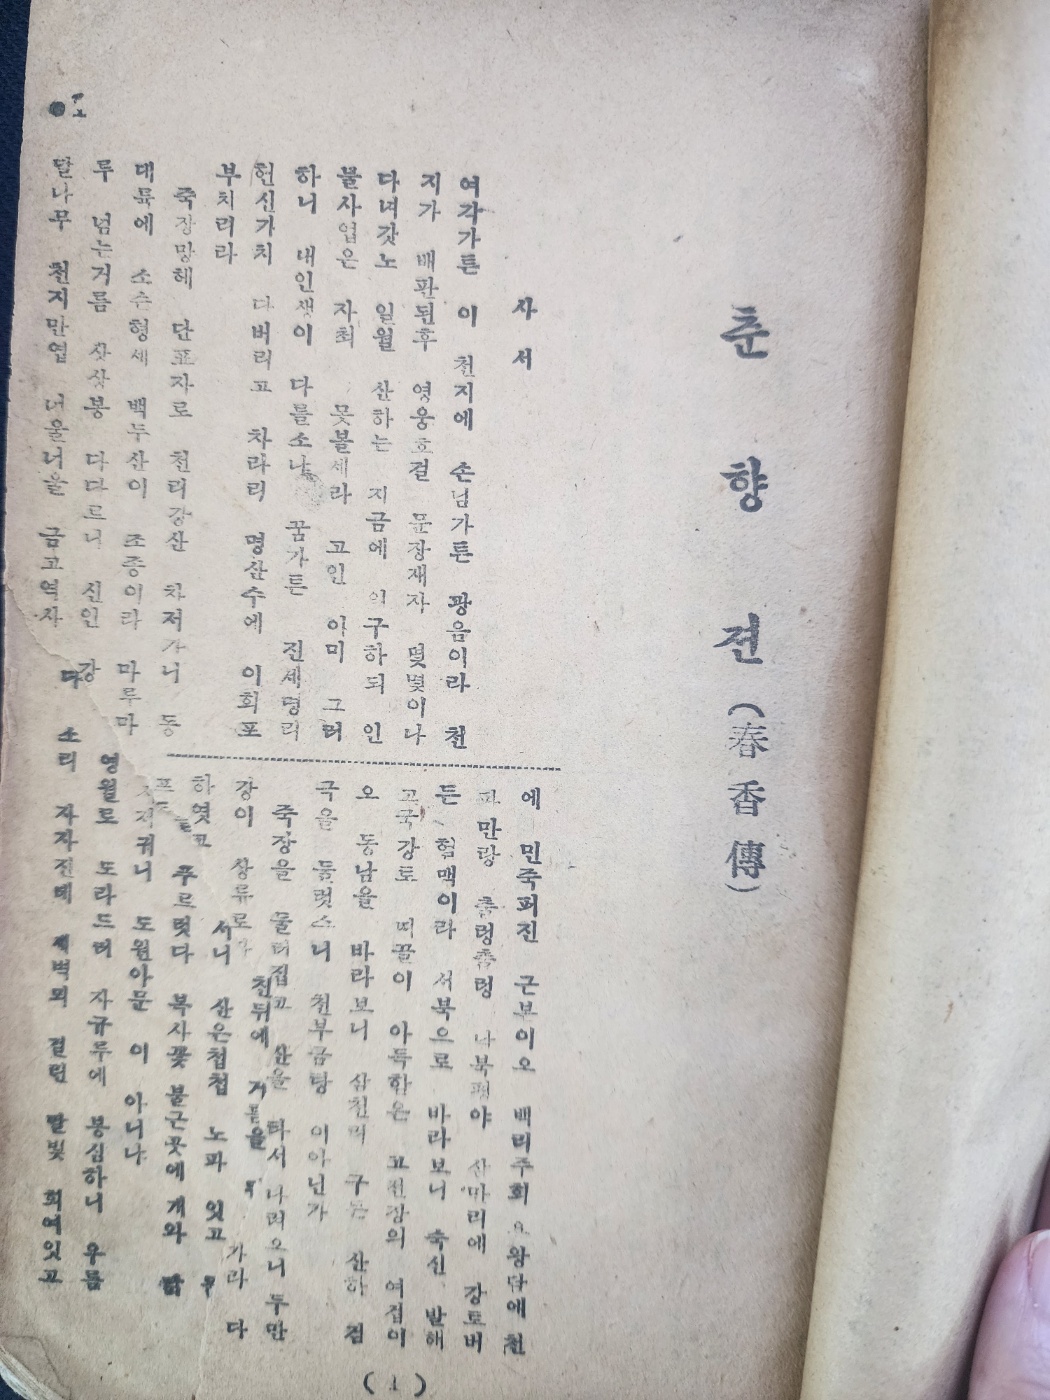 춘향젼(春香傳)
사서
여각가튼 이 천지에 손님가튼 광음이라 천
지가 배판된후 영웅호걸 문장재자 몇몇이나
다녀갓노 일월 산하는 지금에 의구하되 인
물사업은 자최 못볼세라 고인 이미 그러
하니 내인생이 다를소냐 꿈가튼 진세명리
헌신가치 다버리고 차라리 명산수에 이회포
부치리라
죽장망혜 단표자로 천리강산 차저가니 동
대륙에 소슨형세 백두산이 조종이라 마루마
루 넘는거름 상상봉 다다르니 신인 강
달나무 천지만엽 너울너울 금고역사
에 민족퍼진 근본이오 백리주회 왕담에 천
고만랑 출렁출렁 나북평야 산마리에 강토버
든 혐맥이라 서북으로 바라보니 숙신 발해
고국강토 띠끌이 아득함은 고전장의 여겁이
오 동남을 바라보니 삼천리 구든 산하 검
극을 둘럿스니 천부금탕 이아닌가
죽장을 물러집고 산을 타서 나려오니 두만
강이 상류로 천뒤에 거름을 가라 다
하엿고 서니 산은첩첩 노파 잇고
푸르럿다 복사꽃 불근곳에 개와
저귀니 도원아문 이 아니냐
영월로 도라드러 자규루에 봉심하니 우름
소리 자자진데 새벽뫼 걸린 달빛 희여잇고
(1)